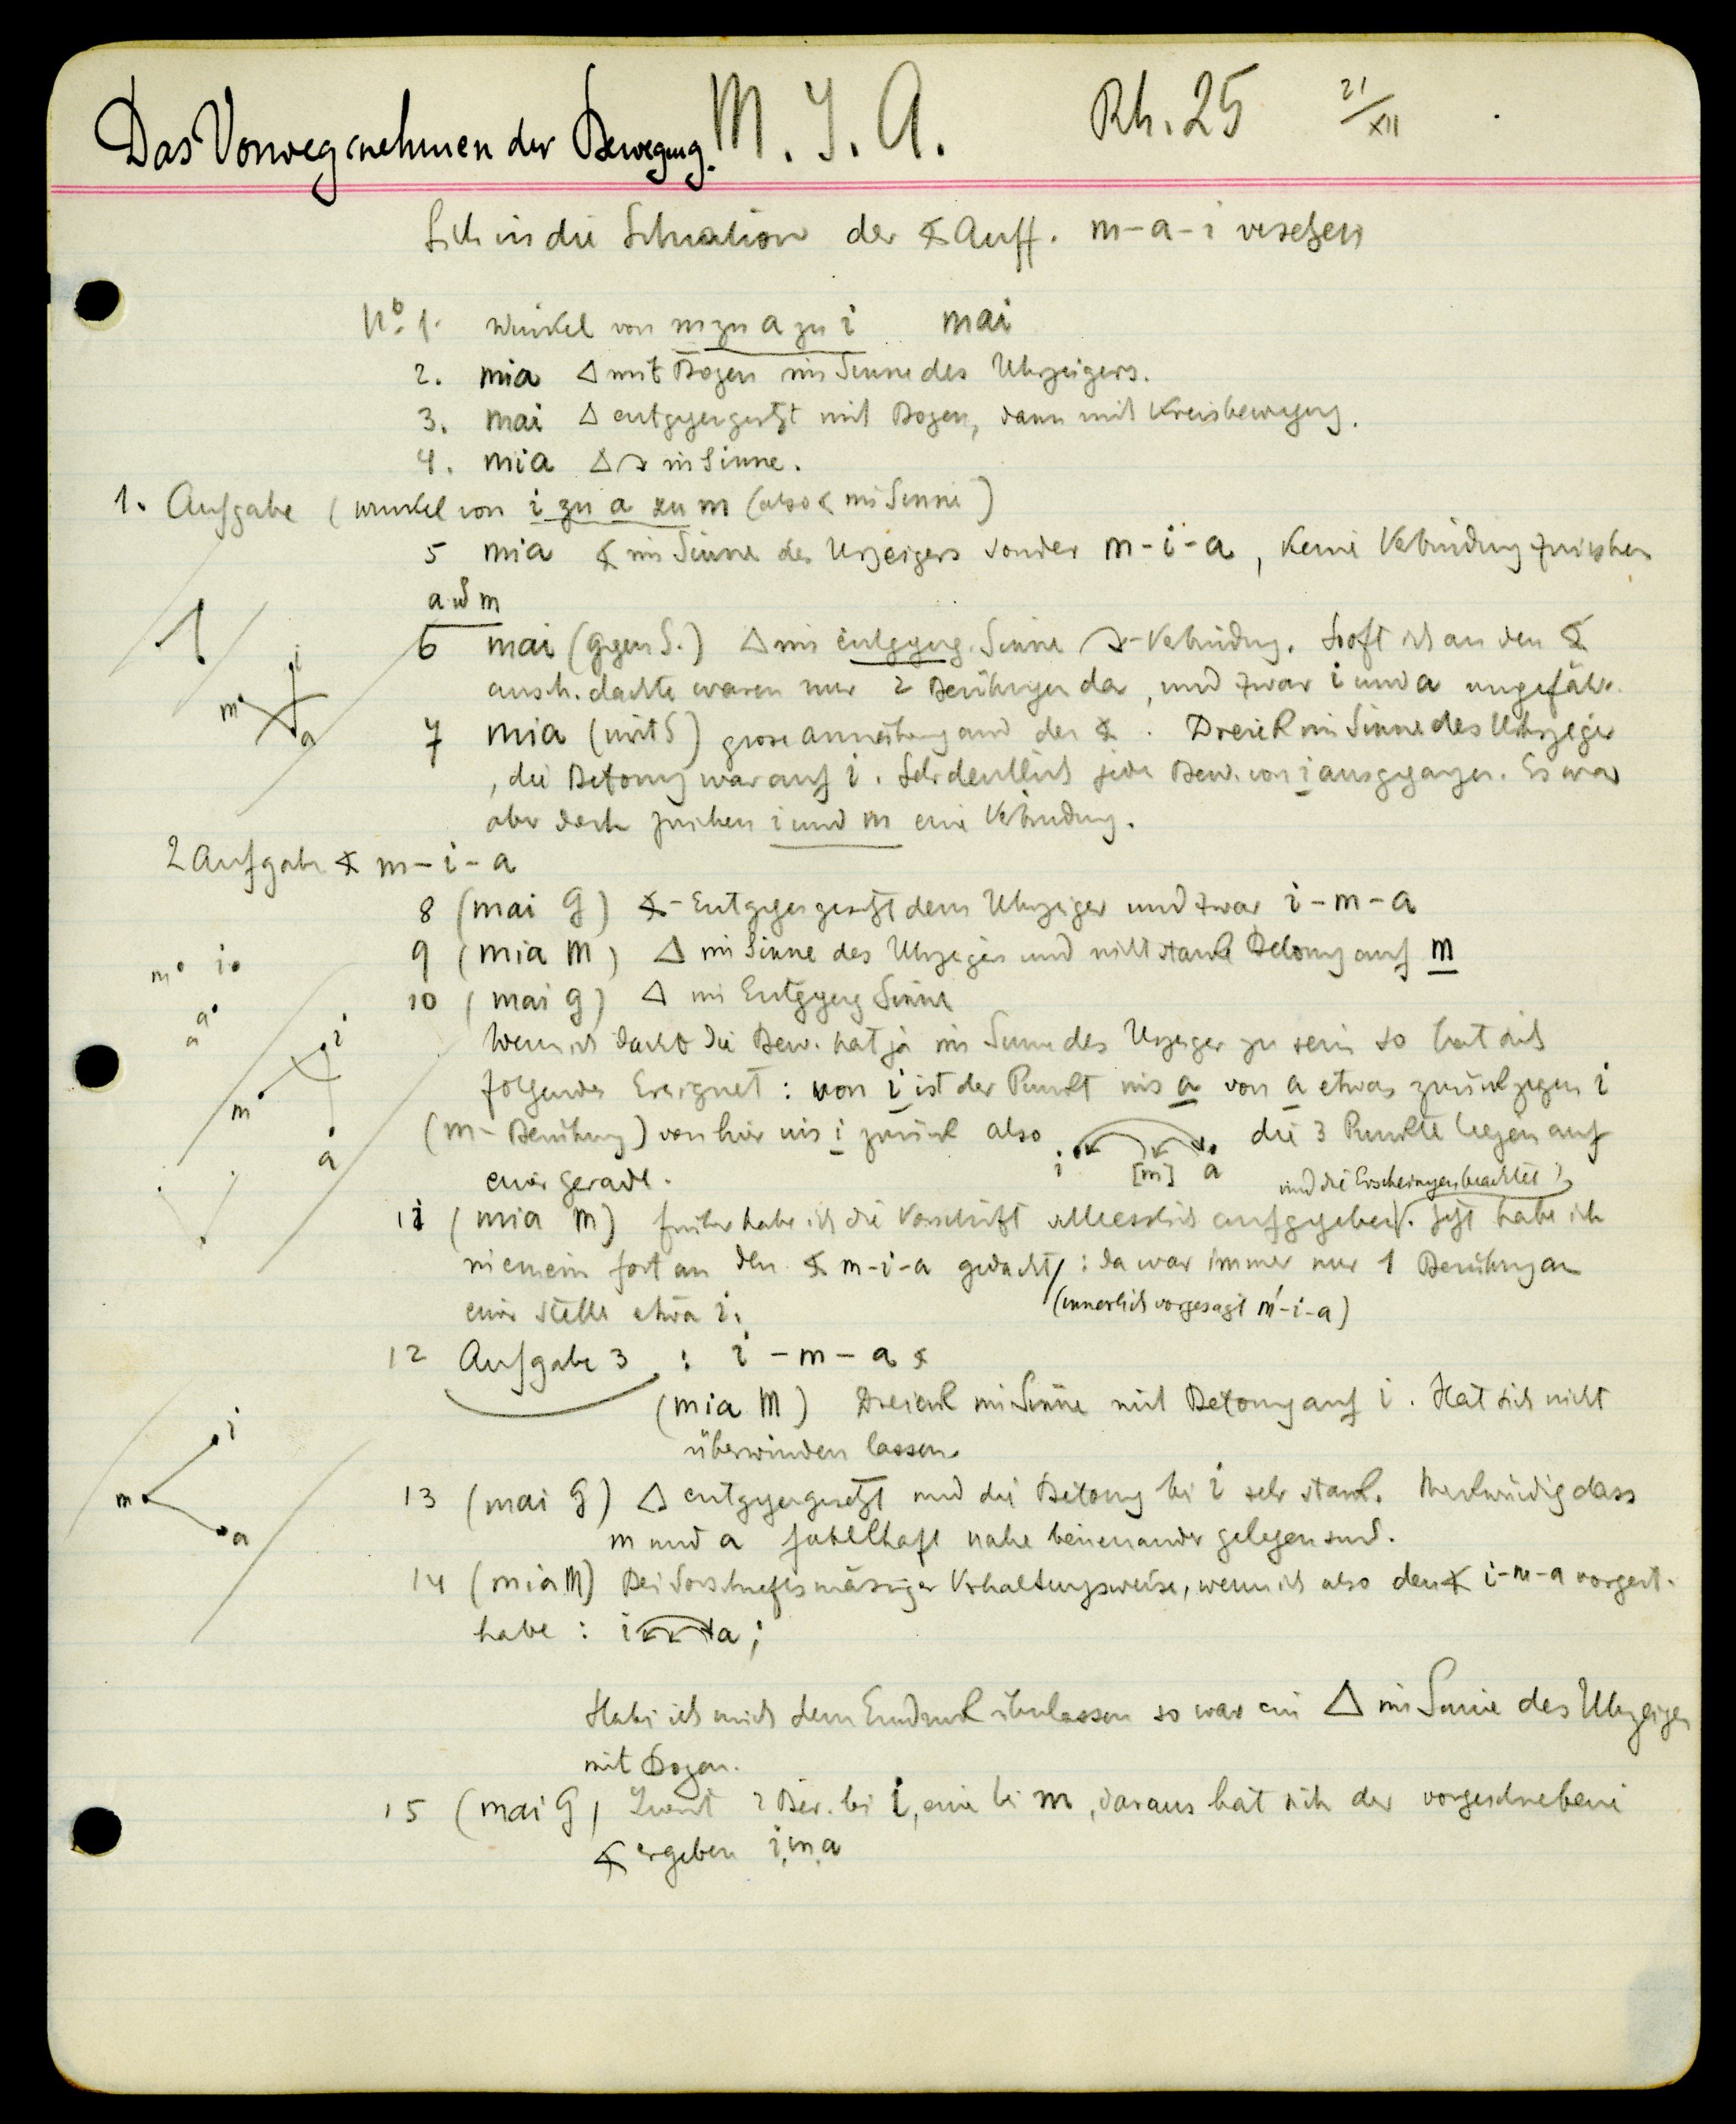 Das Vorwegnehmen der Bewegung. M. J. A. Rh. 25 21/XII
Sich in die Situation der ∢ Auff. m-a-i versetzen
No. 1. Winkel von m zu a zu i mai
2. mia △ mit Bogen im Sinne des Uhrzeigers.
3. mai △ entgegengesetzt mit Bogen, dann mit Kreisbewegung.
4. mia △ im Sinne.
1. Aufgabe (Winkel von i zu a zu m (also ∢ im Sinne)
5 mia ∢ im Sinne des Uhrzeigers sonder m-i-a, keine Verbindung zwischen
a und m
6 mai (gegen S.) △ im entgegeng. Sinne -Verbindung. Sooft ich an den ∢
ansch. dachte waren nur 2 Berührungen da, und zwar i und a ungefähr.
7 mia (mit S) grose annäherung and den ∢. Dreieck im Sinne des Uhrzeiger
, die Betonung war auf i. Sehr deutlich jede Bew. von i ausgegangen. Es war
aber doch zwischen i und m eine Verbindung.
m i a
2 Aufgabe ∢ m-i-a
8 (mai G) ∢-Entgegengesetzt dem Uhrzeiger und zwar i-m-a
9 (mia M) △ im Sinne des Uhrzeigers und nicht stark Betonung auf m
10 (mai G) △ im Entgegeng Sinne
Wenn ich dachte die Bew. hat ja im Sinne des Uhrzeiger zu sein so hat sich
folgendes Ereignet: von i ist der Punkt ins a von a etwas zurück gegen i
(m-Berührung) von hier ins i zurück also i [m] a die 3 Punkte liegen auf
einer gerade.
m i a a
m i a
11 (mia M) früher habe ich die Vorschrift schliesslich aufgegeben (und die Erscheinungen beachtet). Jetzt habe ich
in einem fort an den ∢ m-i-a gedacht (innerlich vorgesagt m-i-a): da war immer nur 1 Berührung an
einer Stelle etwa i.
12 Aufgabe 3 : i-m-a ∢
(mia M) Dreieck im Sinne mit Betonung auf i. Hat sich nicht
überwinden lassen
13 (mai G) △ entgegengesetzt und die Betonung bei i sehr stark. Merkwürdig dass
m und a fabelhaft nahe beieinander gelegen sind.
m i a
14 (miaM) Bei vorschriftsmässiger Verhaltungsweise, wenn ich also den ∢ i-m-a vorgest.
habe : i a ;
Habe ich mich dem Eindruck überlassen so war ein △ im Sinne des Uhrzeiger
mit Bogen.
15 (mai G) Zuerst 2 Ber. bei i, eine bei m, daraus hat sich der vorgeschriebene
∢ ergeben i m a